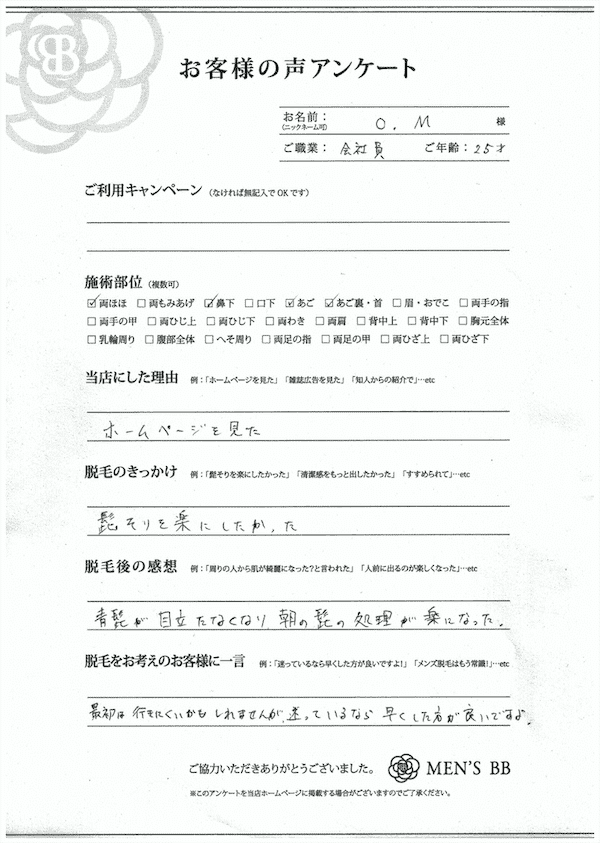 お客様の声アンケート
お名前：
（ニックネーム可）
O. M 様
ご職業： 会社員 ご年齢：25才
ご利用キャンペーン （なければ無記入でOKです）
施術部位（複数可）
☑両ほほ □両もみあげ ☑鼻下 □口下 ☑あご ☑あご裏・首 □眉・おでこ □両手の指
□両手の甲 □両ひじ上 □両ひじ下 □両わき □両肩 □背中上 □背中下 □胸元全体
□乳輪周り □腹部全体 □へそ周り □両足の指 □両足の甲 □両ひざ上 □両ひざ下
当店にした理由 例：「ホームページを見た」「雑誌広告を見た」「知人からの紹介で」…etc
ホームページを見た
脱毛のきっかけ 例：「髭そりを楽にしたかった」「清潔感をもっと出したかった」「すすめられて」…etc
髭そりを楽にしたかった
脱毛後の感想 例：「周りの人から肌が綺麗になった？と言われた」「人前に出るのが楽しくなった」…etc
青髭が目立たなくなり 朝の髭の処理が楽になった。
脱毛をお考えのお客様に一言 例：「迷っているなら早した方が良いですよ！」「メンズ脱毛はもう常識！」…etc
最初は行きにくいかもしれませんが、迷っているなら早くした方が良いですよ。
ご協力いただきありがとうございました。 MEN'S BB
※このアンケートを当店ホームページに掲載する場合がございますのでご了承ください。